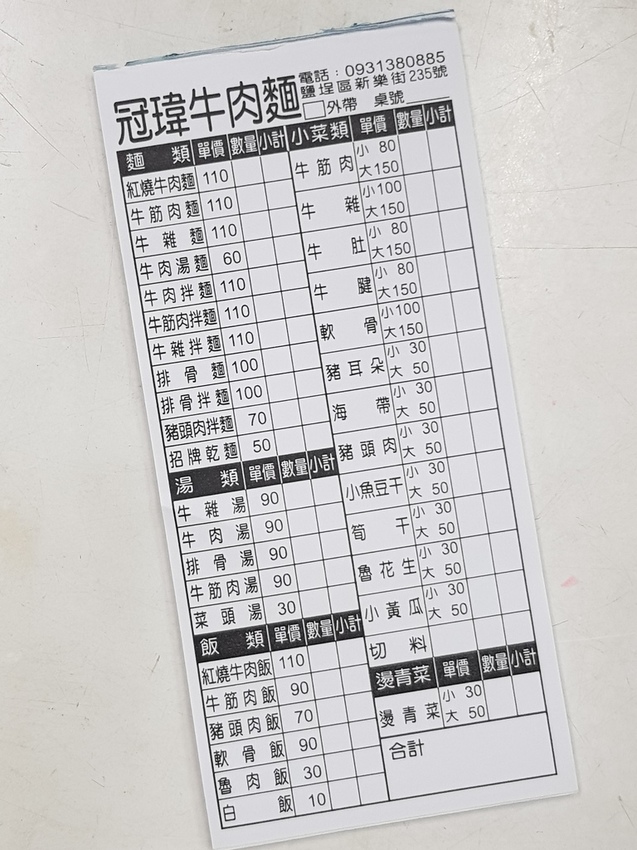 冠瑋牛肉麵
電話：0931380885
鹽埕區新樂街235號
外帶 桌號
麵類 單價 數量 小計
紅燒牛肉麵 110
牛筋肉麵 110
牛雜麵 110
牛肉湯麵 60
牛肉拌麵 110
牛筋肉拌麵 110
牛雜拌麵 110
排骨麵 100
排骨拌麵 100
豬頭肉拌麵 70
招牌乾麵 50
湯類 單價 數量 小計
牛雜湯 90
牛肉湯 90
排骨湯 90
牛筋肉湯 90
菜頭湯 30
飯類 單價 數量 小計
紅燒牛肉飯 110
牛筋肉飯 90
豬頭肉飯 70
軟骨飯 90
魯肉飯 30
白飯 10
小菜類 單價 數量 小計
牛筋肉 小 80
大150
牛雜 小100
大150
牛肚 小 80
大150
牛腱 小 80
大150
軟骨 小100
大150
豬耳朵 小 30
大 50
海帶 小 30
大 50
豬頭肉 小 30
大 50
小魚豆干 小 30
大 50
筍干 小 30
大 50
魯花生 小 30
大 50
小黃瓜 小 30
大 50
切料
燙青菜 單價 數量 小計
燙青菜 小 30
大 50
合計